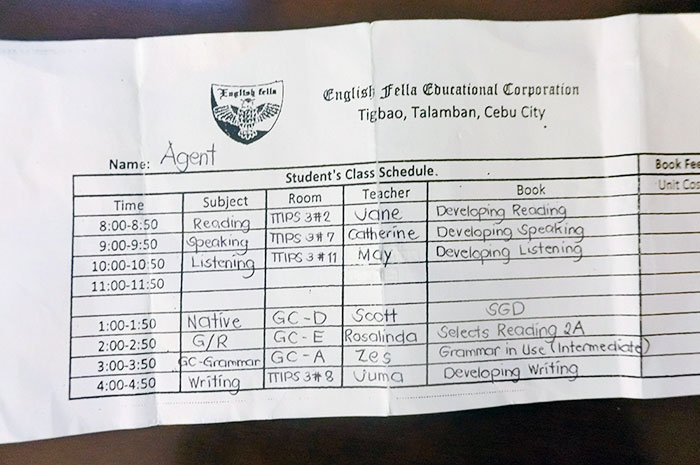 English fella
English Fella Educational Corporation
Tigbao, Talamban, Cebu City
Name: Agent
Book Fee
Student's Class Schedule.
Unit Cos
Time Subject Room Teacher Book
8:00-8:50 Reading MPS 3#2 Jane Developing Reading
9:00-9:50 Speaking MPS 3#7 Catherine Developing Speaking
10:00-10:50 Listening MPS 3#11 May Developing Listening
11:00-11:50
1:00-1:50 Native GC-D Scott SGD
2:00-2:50 G/R GC-E Rosalinda Selects Reading 2A
3:00-3:50 GC-Grammar GC-A Zes Grammar in Use (Intermediate)
4:00-4:50 Writing MPS 3#8 Juma Developing Writing